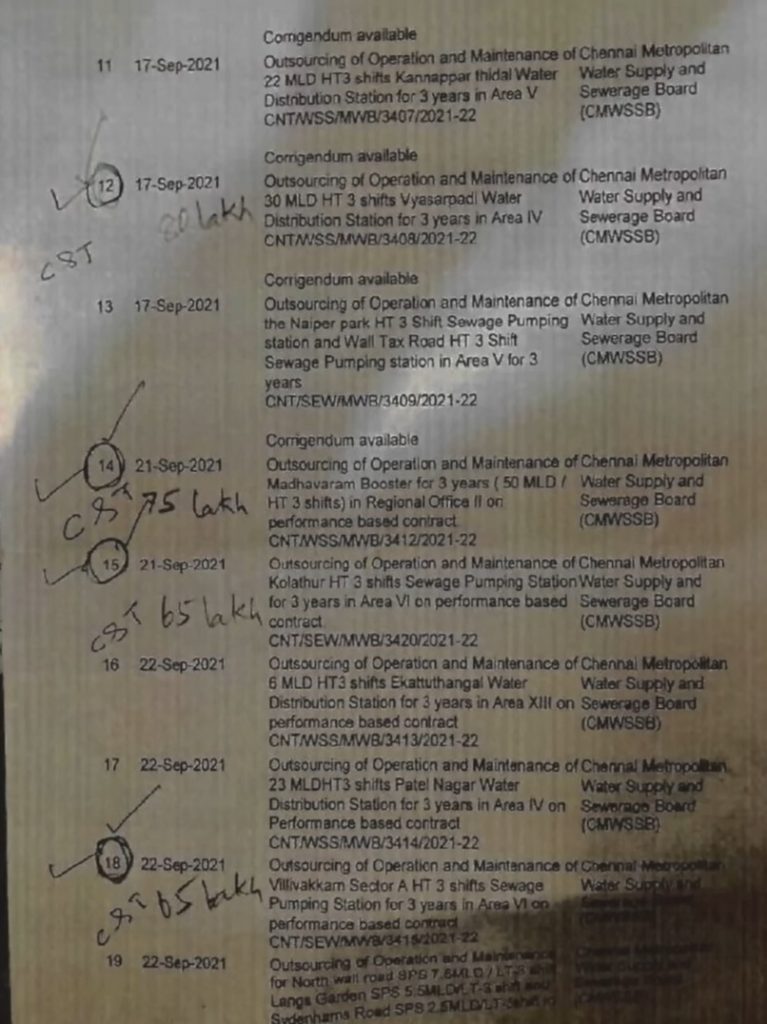 Corrigendum available
11 17-Sep-2021 Outsourcing of Operation and Maintenance of Chennai Metropolitan
22 MLD HT3 shifts Kannappar thidal Water Water Supply and
Distribution Station for 3 years in Area V Sewerage Board
CNT/WSS/MWB/3407/2021-22 (CMWSSB)
Corrigendum available
12 17-Sep-2021 Outsourcing of Operation and Maintenance of Chennai Metropolitan
30 MLD HT 3 shifts Vyasarpadi Water Water Supply and
lakh Distribution Station for 3 years in Area IV Sewerage Board
CNT/WSS/MWB/3408/2021-22 (CMWSSB)
CST
Corrigendum available
13 17-Sep-2021 Outsourcing of Operation and Maintenance of Chennai Metropolitan
the Naiper park HT 3 Shift Sewage Pumping Water Supply and
station and Wall Tax Road HT 3 Shift Sewerage Board
Sewage Pumping station in Area V for 3 (CMWSSB)
years
CNT/SEW/MWB/3409/2021-22
Corrigendum available
14 21-Sep-2021 Outsourcing of Operation and Maintenance of Chennai Metropolitan
Madhavaram Booster for 3 years ( 50 MLD / Water Supply and
CST 75 lakh HT 3 shifts) in Regional Office II on Sewerage Board
performance based contract (CMWSSB)
CNT/WSS/MWB/3412/2021-22
15 21-Sep-2021 Outsourcing of Operation and Maintenance of Chennai Metropolitan
Kolathur HT 3 shifts Sewage Pumping Station Water Supply and
CST 65 lakh for 3 years in Area VI on performance based Sewerage Board
contract. (CMWSSB)
CNT/SEW/MWB/3420/2021-22
16 22-Sep-2021 Outsourcing of Operation and Maintenance of Chennai Metropolitan
6 MLD HT3 shifts Ekattuthangal Water Water Supply and
Distribution Station for 3 years in Area XIII on Sewerage Board
performance based contract (CMWSSB)
CNT/WSS/MWB/3413/2021-22
17 22-Sep-2021 Outsourcing of Operation and Maintenance of Chennai Metropolitan
23 MLDHT3 shifts Patel Nagar Water Water Supply and
Distribution Station for 3 years in Area IV on Sewerage Board
Performance based contract (CMWSSB)
CNT/WSS/MWB/3414/2021-22
18 22-Sep-2021 Outsourcing of Operation and Maintenance of Chennai Metropolitan
Villivakkam Sector A HT 3 shifts Sewage Water Supply and
CST 65 lakh Pumping Station for 3 years in Area VI on
performance based contract
CNT/SEW/MWB/3415/2021-22
19 22-Sep-2021 Outsourcing of Operation and Maintenance
for North wall road SPS 7.6MLD / LT-3 shift
Langs Garden SPS 5.5MLD/LT-3 shift and
Sydenhams Road SPS 2.5MLD/LT-